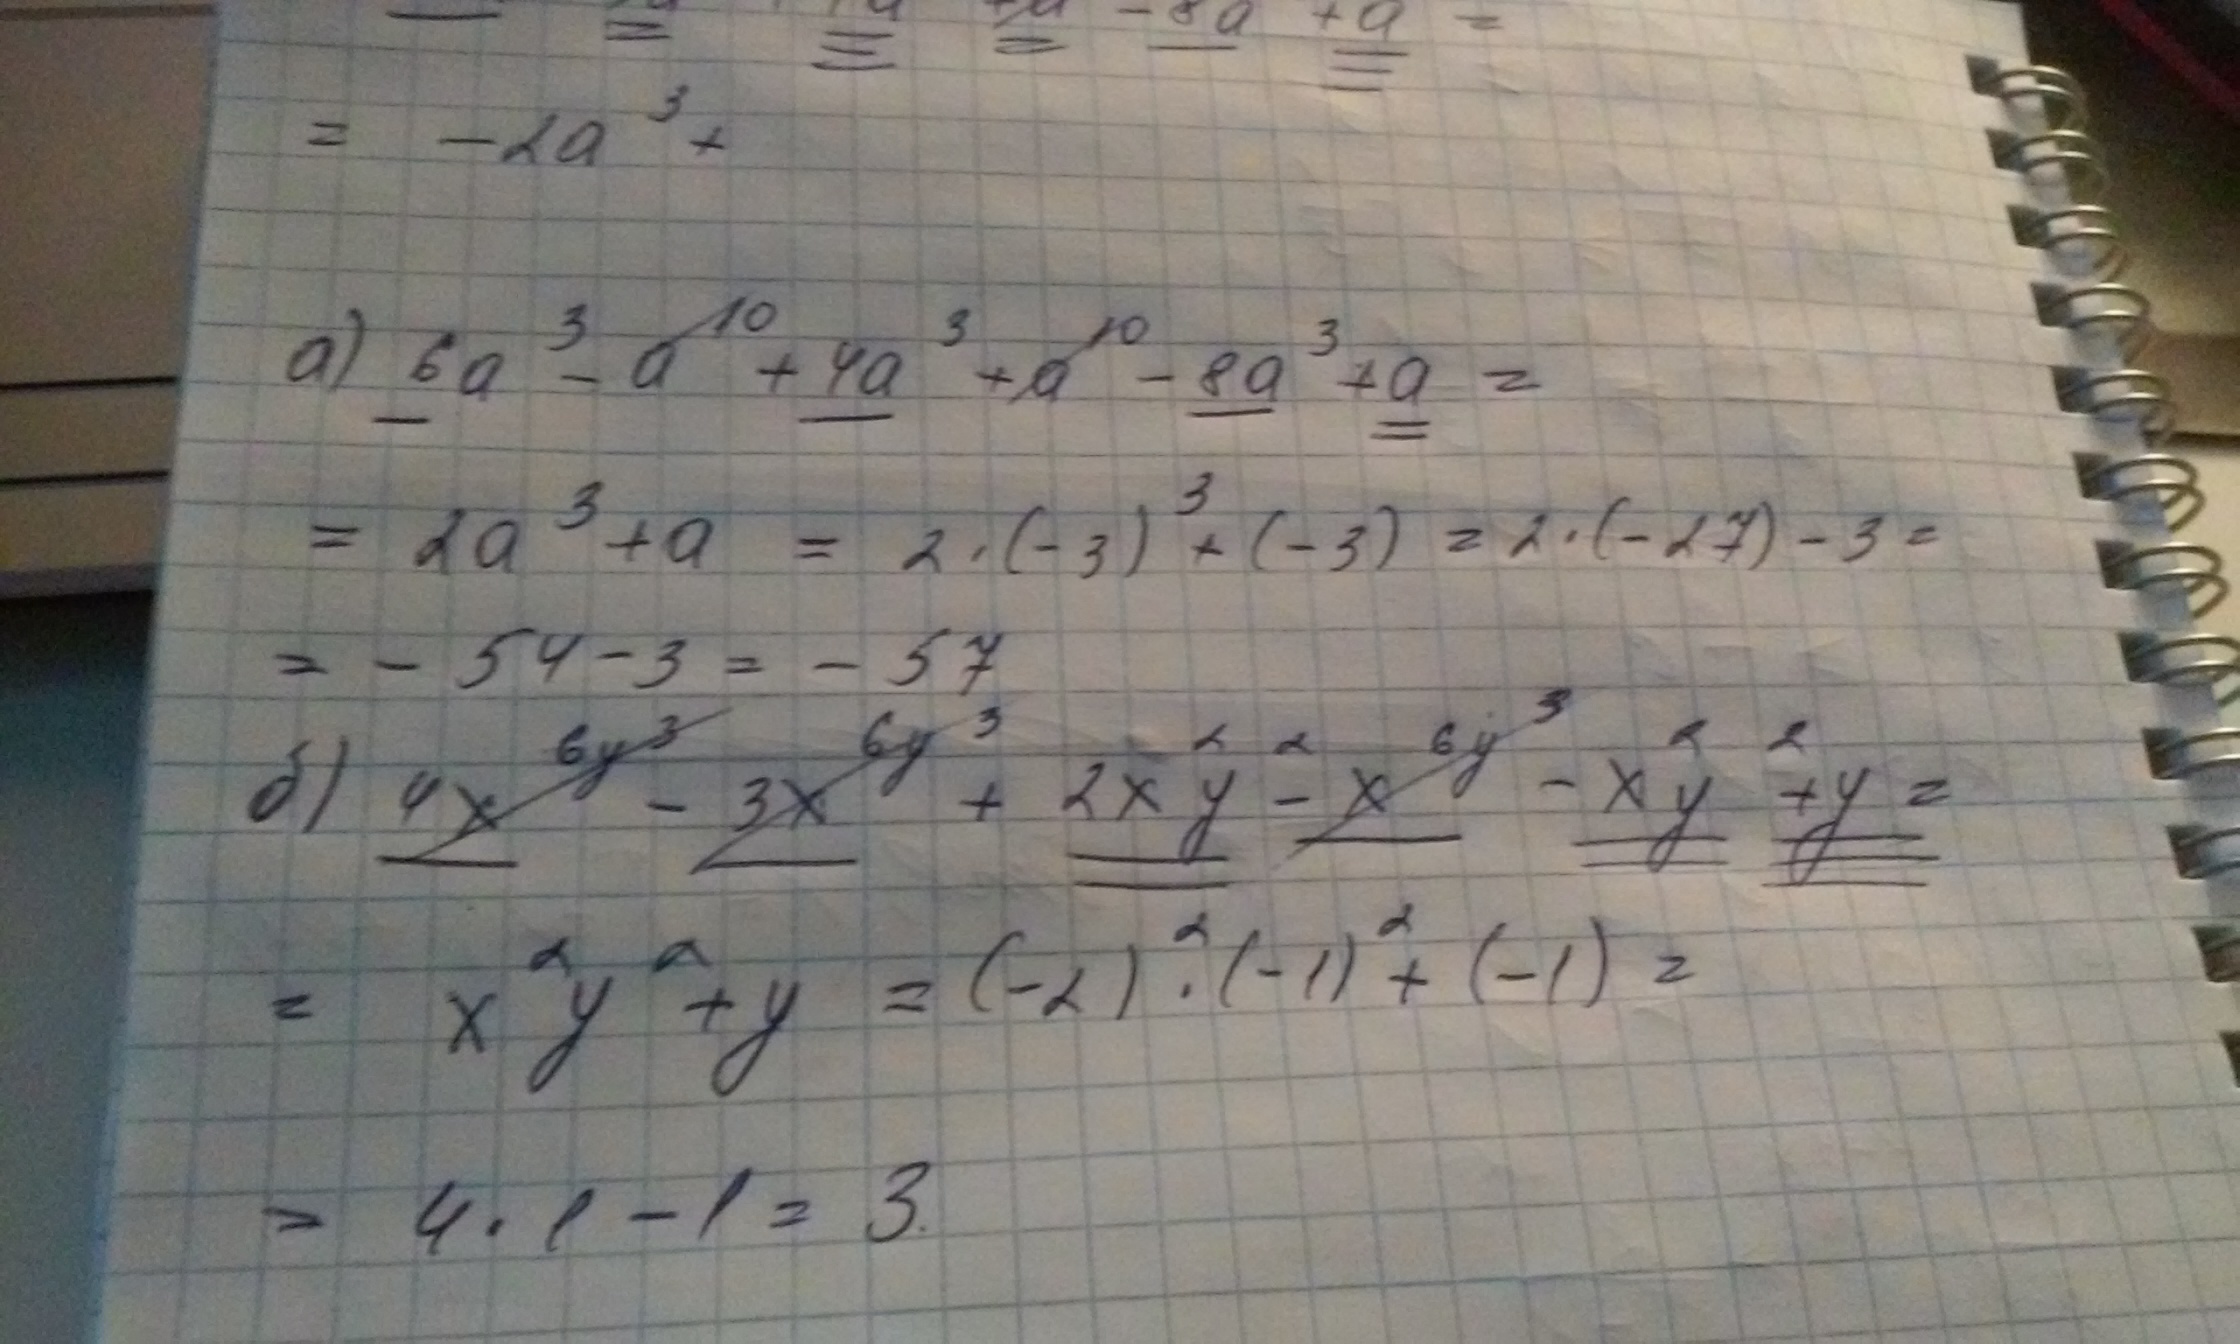 - 8a + a =
= - 2a³ +
а) 6a³ - a¹⁰ + 4a³ + a¹⁰ - 8a³ + a =
= 2a³ + a = 2·(-3)³ + (-3) = 2·(-27) - 3 =
= - 54 - 3 = - 57
б) 4x⁶y³ - 3x⁶y³ + 2x²y² - x⁶y³ - x²y² + y =
= x²y² + y = (-2)²·(-1)² + (-1) =
= 4·1 - 1 = 3.